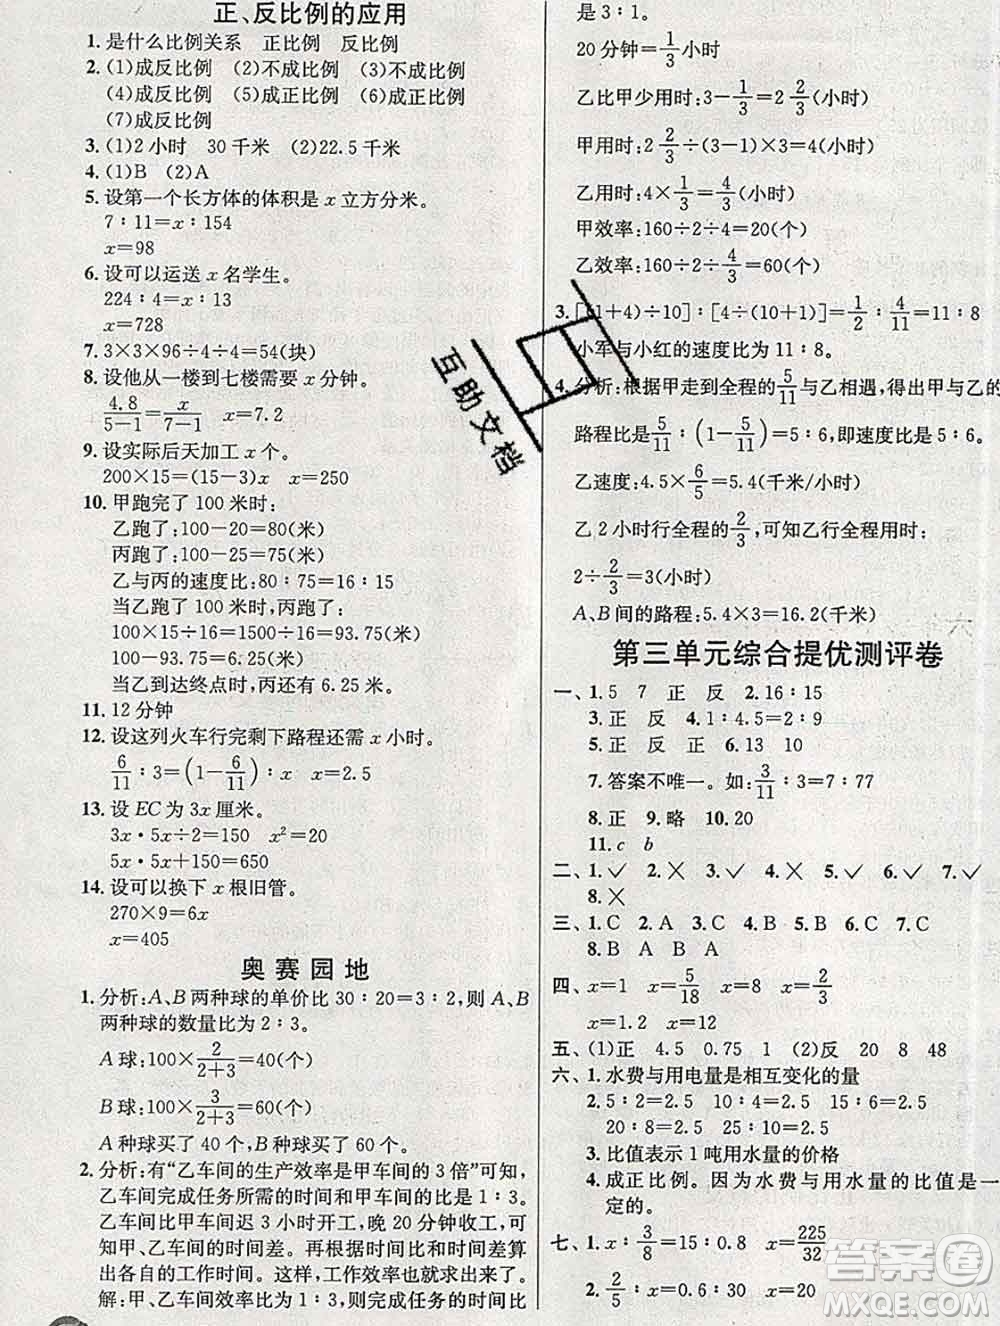 正、反比例的应用
1. 是什么比例关系 正比例 反比例
2. (1)成反比例 (2)不成比例 (3)不成比例
(4)成反比例 (5)成正比例 (6)成反比例
(7)成反比例
3. (1)2 小时 30 千米 (2)22.5 千米
4. (1)B (2)A
5. 设第一个长方体的体积是 x 立方分米。
7∶11=x∶154
x=98
6. 设可以运送 x 名学生。
224∶4=x∶13
x=728
7. 3×3×96÷4÷4=54(块)
8. 设他从一楼到七楼需要 x 分钟。
4.8/(5-1)=x/(7-1) x=7.2
9. 设实际后天加工 x 个。
200×15=(15-3)x x=250
10. 甲跑完了 100 米时:
乙跑了:100-20=80(米)
丙跑了:100-25=75(米)
乙与丙的速度比:80∶75=16∶15
当乙跑了 100 米时,丙跑了:
100×15÷16=1500÷16=93.75(米)
100-93.75=6.25(米)
当乙到达终点时,丙还有 6.25 米。
11. 12 分钟
12. 设这列火车行完剩下路程还需 x 小时。
6/11∶3=(1-6/11)∶x x=2.5
13. 设 EC 为 3x 厘米。
3x·5x÷2=150 x²=20
5x·5x+150=650
14. 设可以换下 x 根旧管。
270×9=6x
x=405
奥赛园地
1. 分析:A、B 两种球的单价比 30∶20=3∶2,则 A、B
两种球的数量比为 2∶3。
A 球:100×2/(2+3)=40(个)
B 球:100×3/(2+3)=60(个)
A 种球买了 40 个,B 种球买了 60 个。
2. 分析:有“乙车间的生产效率是甲车间的 3 倍”可知,
乙车间完成任务所需的时间和甲车间的比是 1∶3。
乙车间比甲车间迟 3 小时开工,晚 20 分钟收工,可
知甲、乙车间的时间差。再根据时间比和时间差算
出各自的工作时间。这样,工作效率也就求出来了。
解:甲、乙车间的效率比是 1∶3,则完成任务的时间比
是 3∶1。
20 分钟=1/3小时
乙比甲少用时:3-1/3=2 2/3(小时)
甲用时:2 2/3÷(3-1)×3=4(小时)
乙用时:4×1/3=4/3(小时)
甲效率:160÷2÷4=20(个)
乙效率:160÷2÷4/3=60(个)
3. [(1+4)÷10]∶[4÷(10+1)]=1/2∶4/11=11∶8
小军与小红的速度比为 11∶8。
4. 分析:根据甲走到全程的5/11与乙相遇,得出甲与乙的
路程比是5/11∶(1-5/11)=5∶6,即速度比为 5∶6。
乙速度:4.5×6/5=5.4(千米/小时)
乙 2 小时行全程的2/3,可知乙行全程用时:
2÷2/3=3(小时)
A、B 间的路程:5.4×3=16.2(千米)
第三单元综合提优测评卷
一、1. 5 7 正 反 2. 16∶15
3. 正 反 4. 1∶4.5=2∶9
5. 正 反 正 6. 13 10
7. 答案不唯一。如:3/11∶1=7∶77
8. 正 9. 略 10. 20
11. c b
二、1. ✓ 2. ✕ 3. ✓ 4. ✕ 5. ✓ 6. ✓ 7. ✓
8. ✕
三、1. C 2. A 3. C 4. B 5. B 6. C 7. C
8. B A B A
四、x=1 x=5/18 x=9 x=2/3
x=1.2 x=12
五、(1)正 4.5 0.75 1 (2)反 20 8 48
六、1. 水费与用电量是相互变化的量
2. 5∶2=2.5 10∶4=2.5 15∶6=2.5
20∶8=2.5
3. 比值表示 1 吨用水量的价格
4. 成正比例。因为水费与用水量的比值是一
定的。
七、1. x∶3/8=15∶0.8 x=225/32
2. 2/5∶x=0.6∶0.3
互助文档
答案圈
MXQE.COM